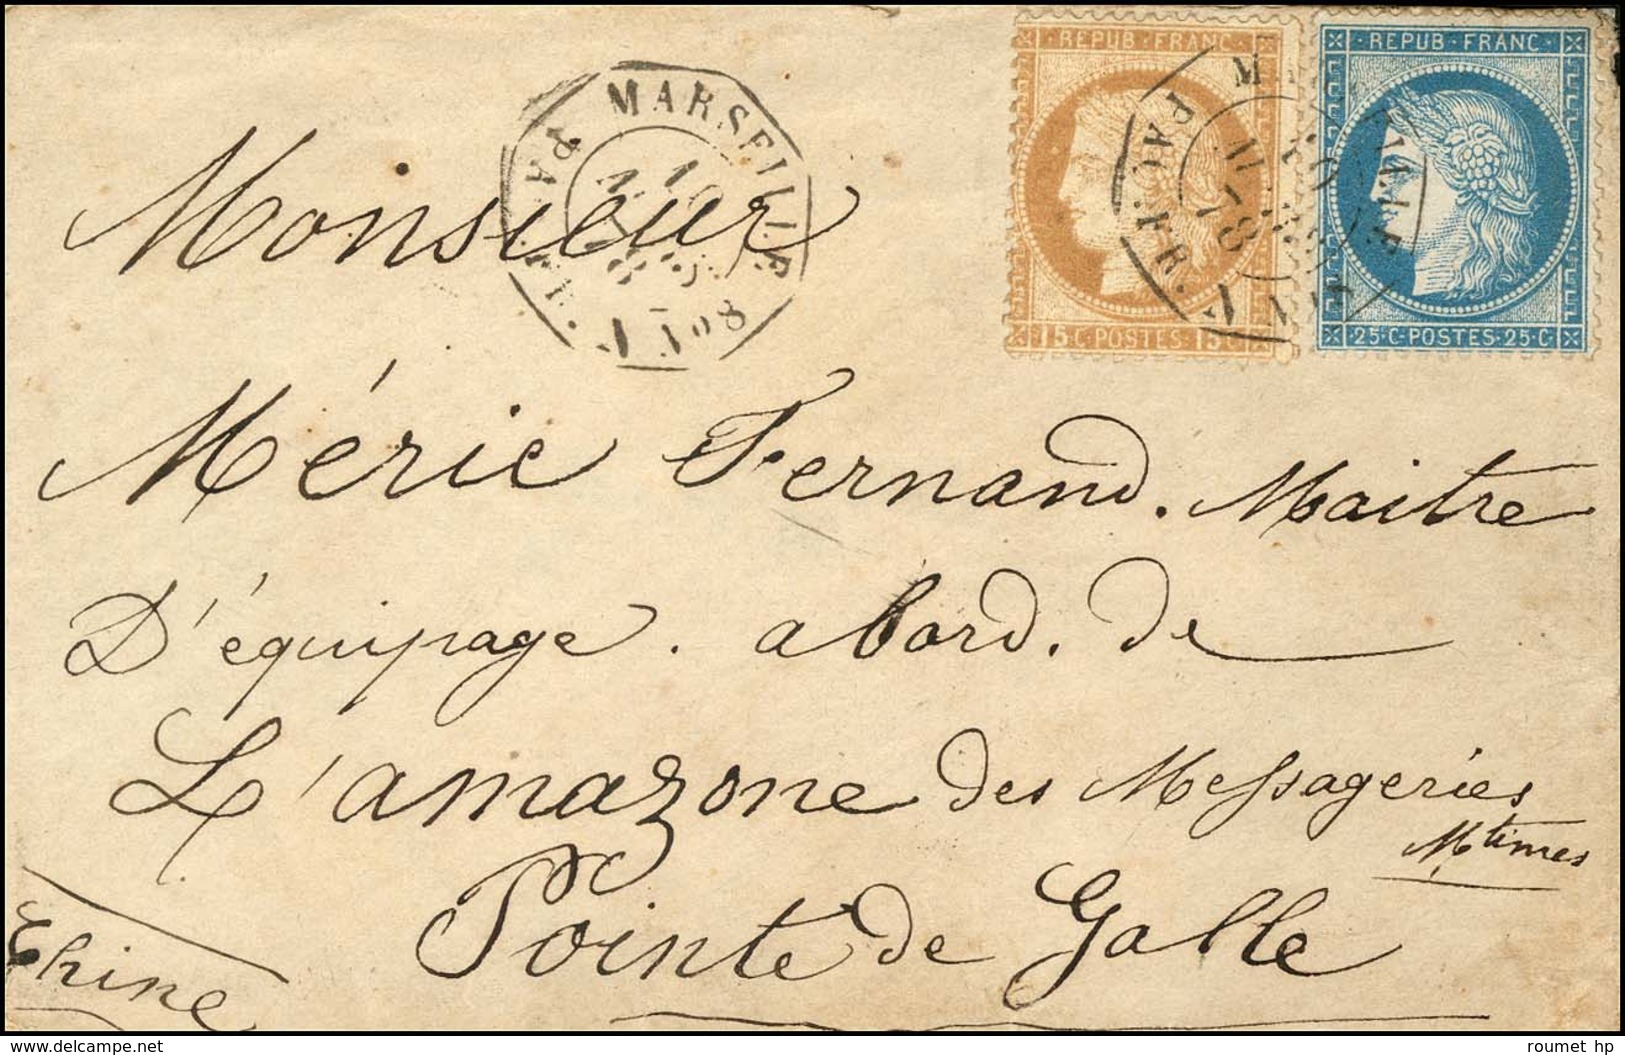 REPUB · FRANC
REPUB · FRANC
MARSEILLE
10
PAQ. FR. V Nº 8
PAQ. FR. V
78
15 · C · POSTES · 15 · C
25 · C · POSTES · 25 · C
Monsieur
Méric Fernand. Maitre
D'équipage. a bord. de
L'amazone des Messageries
M.times
Pointe de Galle
Chine
roumet hp
www.delcampe.net